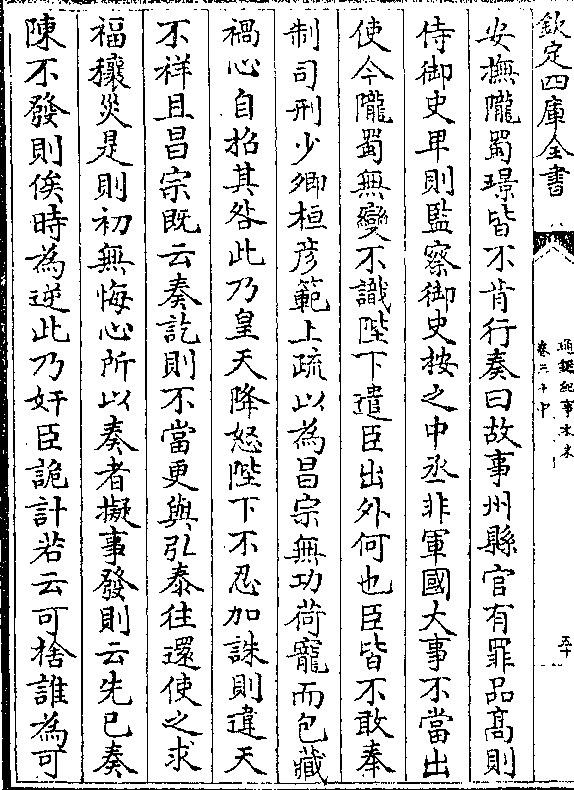 欽定四庫全書
通鑑紀事本末
卷三十中
五十
安撫隴蜀璟皆不肯行奏曰故事州縣官有罪品髙則
侍御史卑則監察御史按之中丞非軍國大事不當出
使今隴蜀無變不識陛下遣臣出外何也臣皆不敢奉
制司刑少卿桓彦範上疏以為昌宗無功荷寵而包藏
禍心自招其咎此乃皇天降怒陛下不忍加誅則違天
不祥且昌宗既云奏訖則不當更與引泰往還使之求
福穰災是則初無悔心所以奏者擬事發則云先已奏
陳不發則俟時為逆此乃奸臣詭計若云可捨誰為可